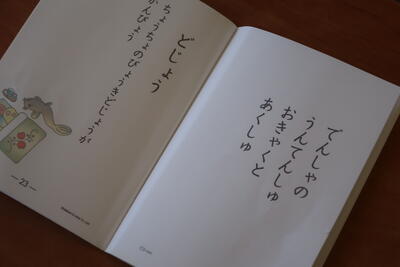 どじょう
ちょうちょのびょうきどじょうが
かんびょう
—23—
でんしゃの
うんてんしゅ
おきゃくと
あくしゅ